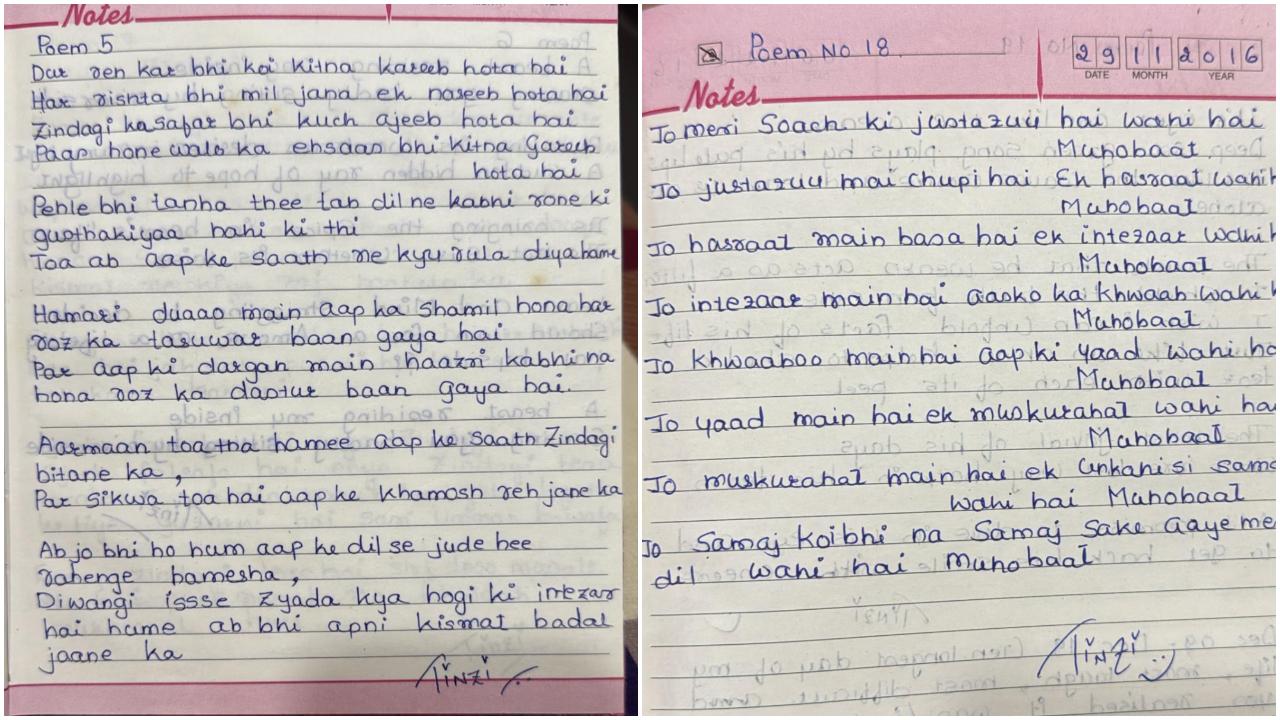 Notes
Poem 5
Dur reh kar bhi koi kitna kareeb hota hai
Har rishta bhi mil jana ek naseeb hota hai
Zindagi ka safar bhi kuch ajeeb hota hai
Paas hone walo ka ehsaas bhi kitna Gareeb
hota hai
Pehle bhi tanha thee tab dil ne kabhi rone ki
gusthakiyaa nahi ki thi
Toa ab aap ke saath ne kyu rula diya hame
Hamari duaao main aap ka shamil hona har
roz ka tasuwar baan gaya hai
Par aap ki dargah main haazri kabhi na
hona roz ka dastur baan gaya hai.
Aarmaan toa tha hamee aap ke saath Zindagi
bitane ka,
Par Sikwa toa hai aap ke khamosh reh jane ka
Ab jo bhi ho hum aap ke dil se jude hee
rahenge hamesha,
Diwangi issse zyada kya hogi ki intezar
hai hame ab bhi apni kismat badal
jaane ka
Tinzi
Poem No 18
29 11 2016
DATE MONTH YEAR
Notes
Jo meri Soach ki justazuu hai wahi hai
Muhobaat
Jo justazuu mai chupi hai Ek hasraat wahi
Muhobaat
Jo hasraat main basa hai ek intezaar wahi
Muhobaat
Jo intezaar main hai aasko ka khwaab wahi
Muhobaat
Jo khwaaboo main hai aap ki yaad wahi ha
Muhobaat
Jo yaad main hai ek muskurahat wahi ha
Muhobaat
Jo muskurahat main hai ek Unkahi si sama
wahi hai Muhobaat
Jo Samaj koi bhi na Samaj sake aaye me
dil wahi hai muhobaat
Tinzi